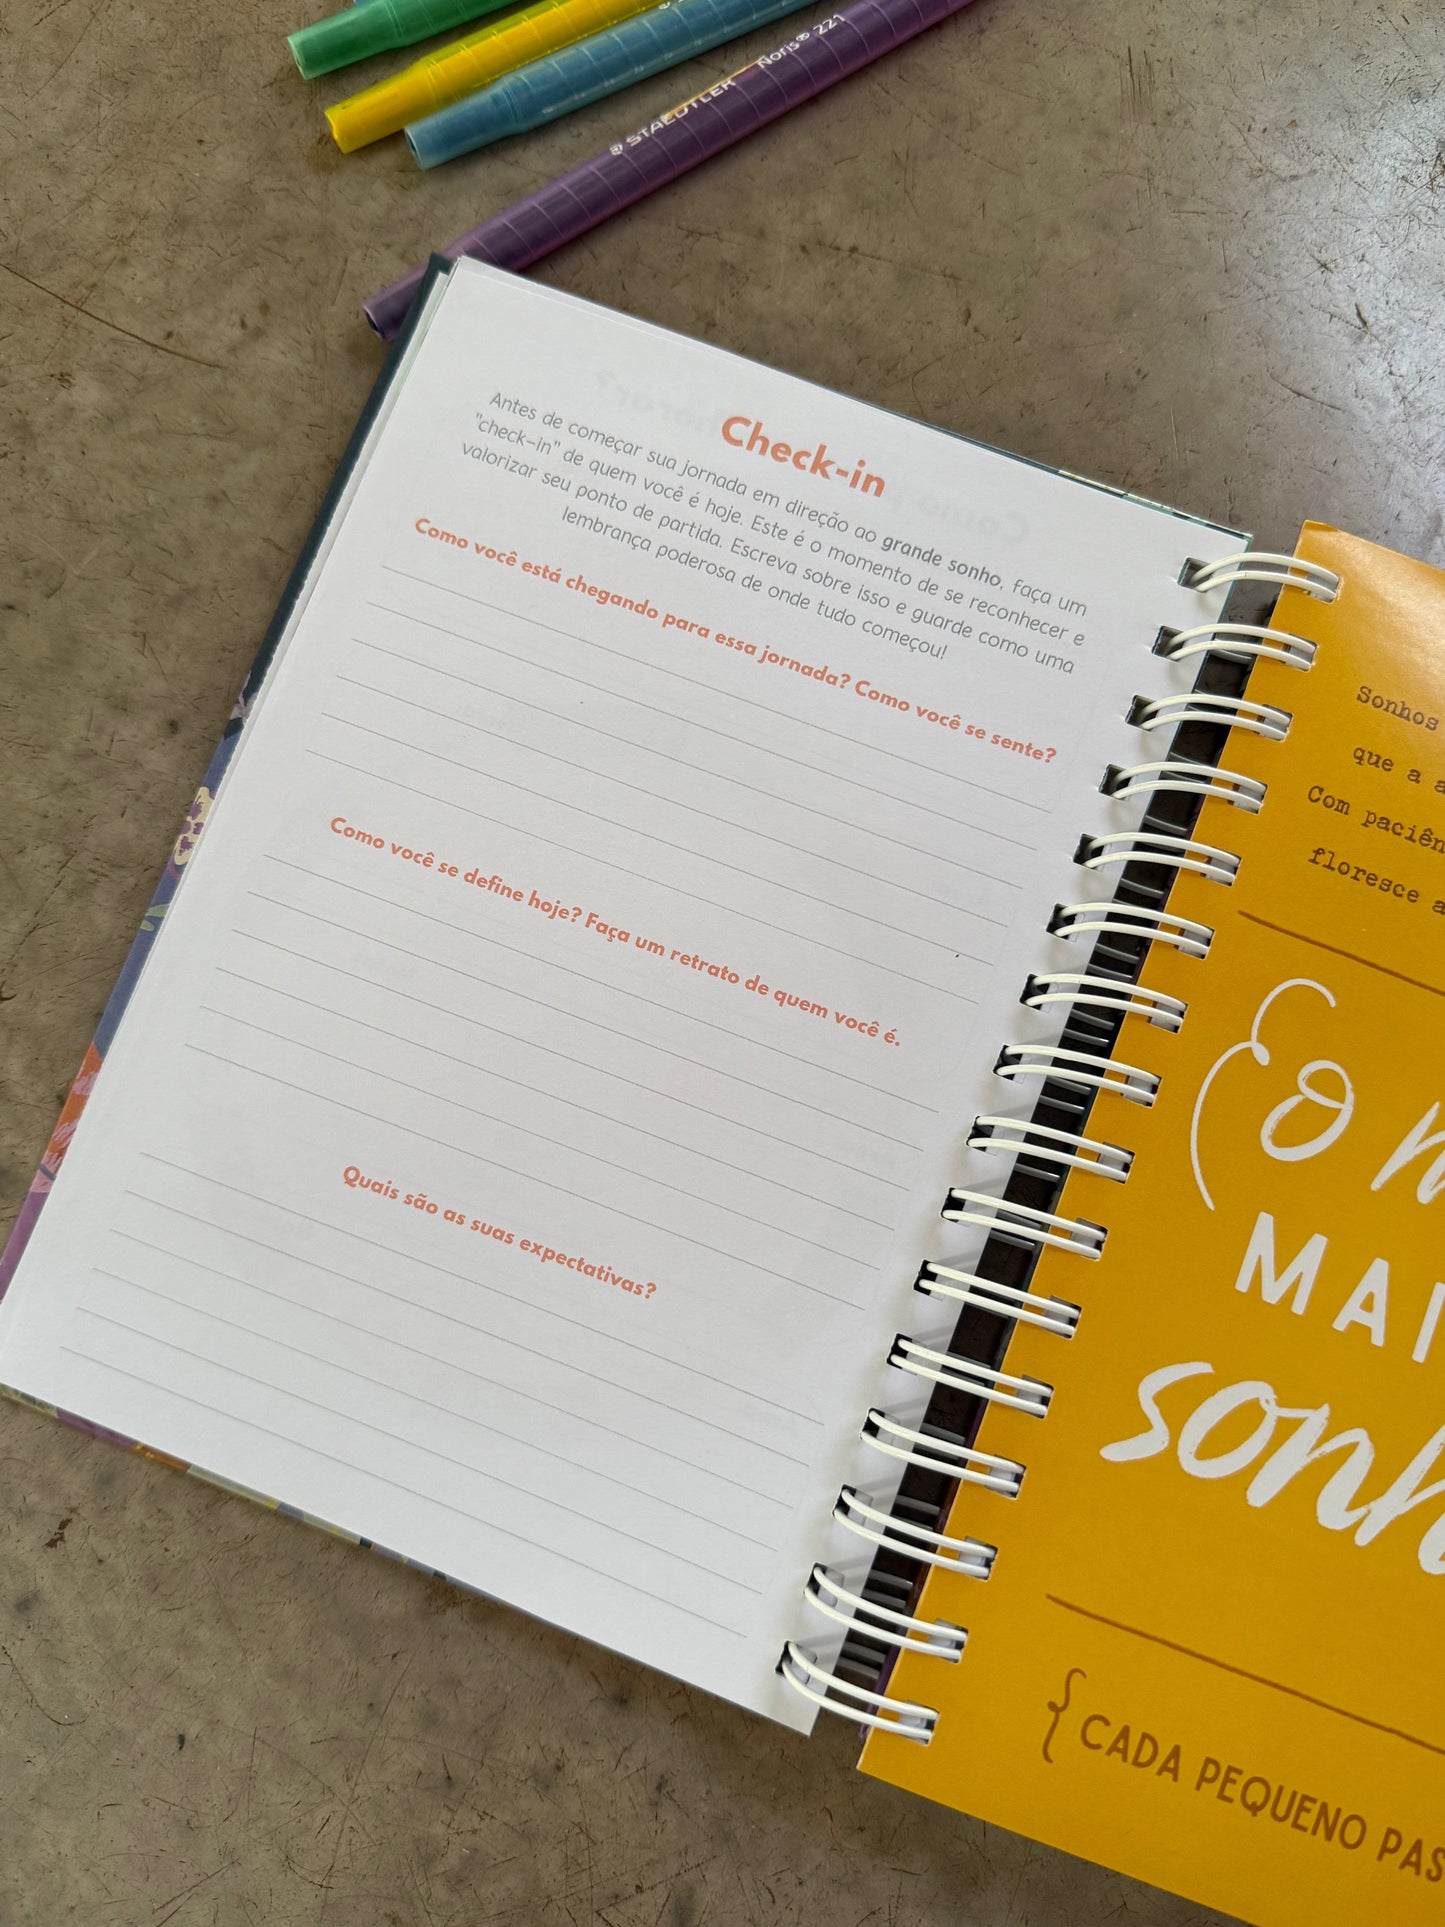 STAEDTLER Noris® 221
Check-in
Antes de começar sua jornada em direção ao grande sonho, faça um
"check-in" de quem você é hoje. Este é o momento de se reconhecer e
valorizar seu ponto de partida. Escreva sobre isso e guarde como uma
lembrança poderosa de onde tudo começou!
Como você está chegando para essa jornada? Como você se sente?
Como você se define hoje? Faça um retrato de quem você é.
Quais são as suas expectativas?
Sonhos
que a a
Com paciên
floresce a
E o m
MAI
sonh
{ CADA PEQUENO PAS